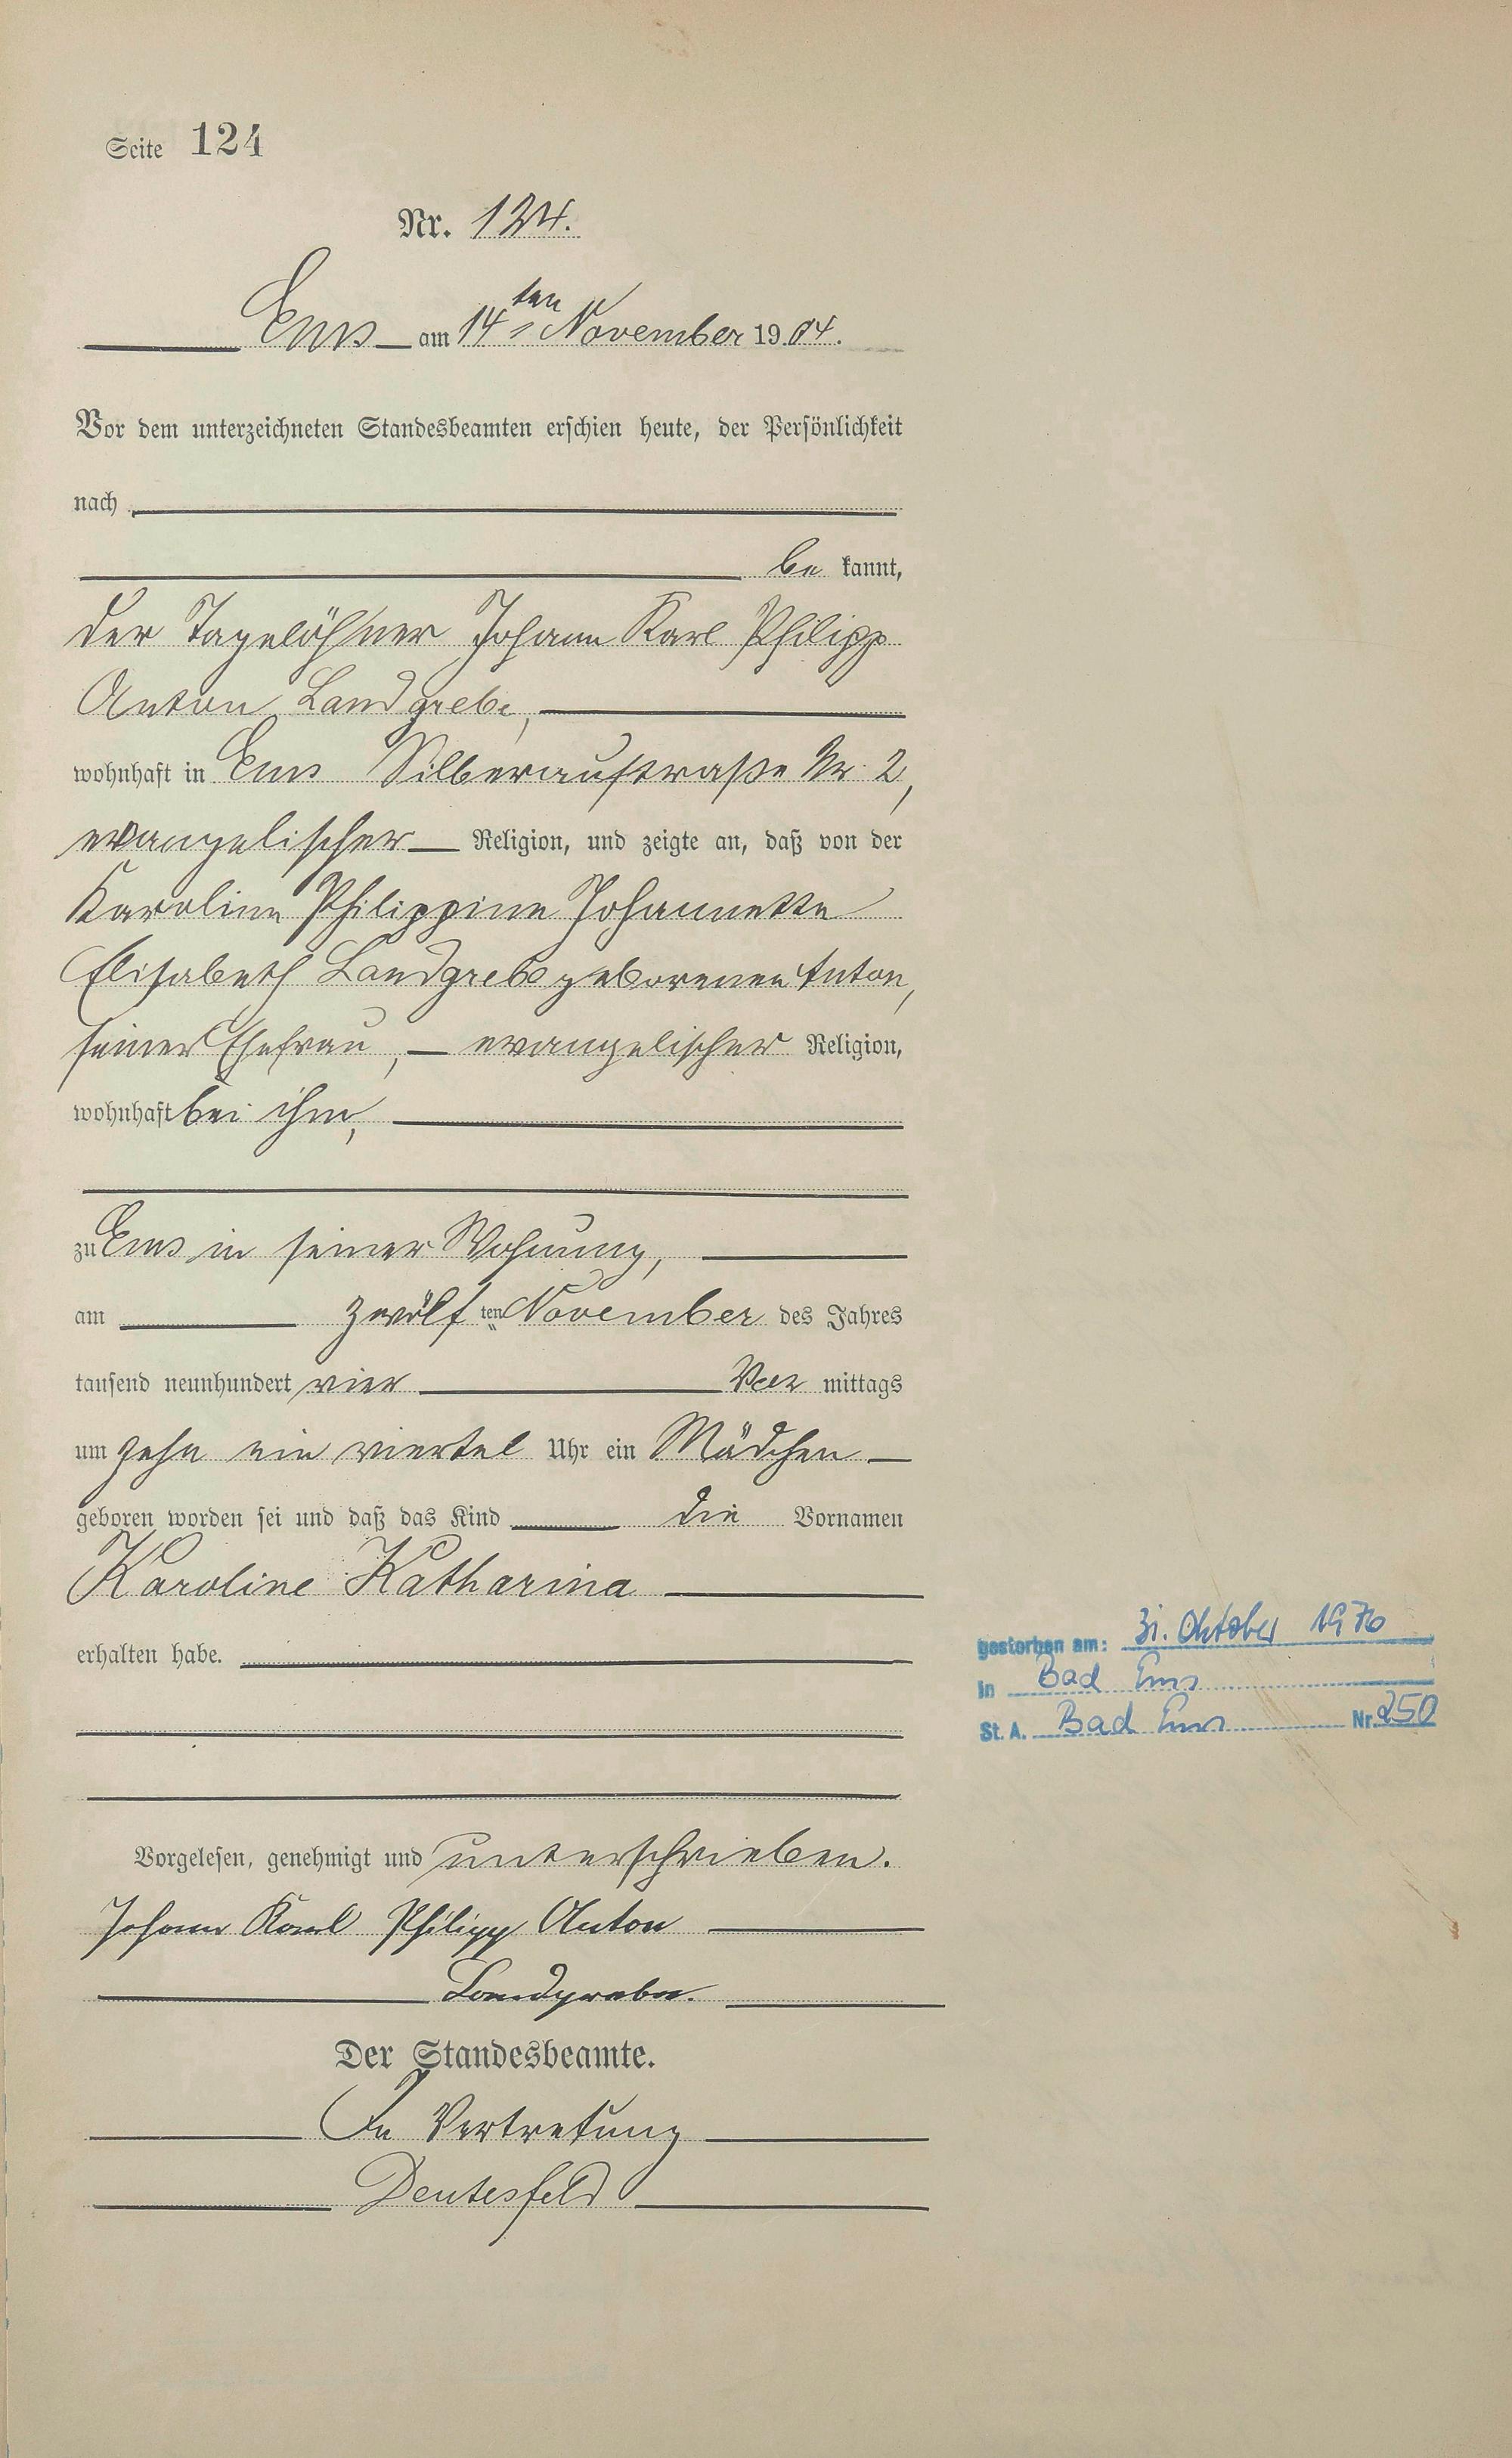 Seite 124
Nr. 124.
Ems am 14ten November 1904.
Vor dem unterzeichneten Standesbeamten erschien heute, der Persönlichkeit
nach
be kannt,
der Tagelöhner Johann Karl Philipp
Anton Landgrebe,
wohnhaft in Ems Silberaustraße Nr. 2,
evangelischer Religion, und zeigte an, daß von der
Karoline Philippine Johannette
Elisabeth Landgrebe geborenen Anton,
seiner Ehefrau, evangelischer Religion,
wohnhaft bei ihm,
zu Ems in seiner Wohnung,
am zwölf ten November des Jahres
tausend neunhundert vier Vor mittags
um zehn ein viertel Uhr ein Mädchen
geboren worden sei und daß das Kind die Vornamen
Karoline Katharina
erhalten habe.
gestorben am: 31. Oktober 1976
in Bad Ems
St. A. Bad Ems Nr. 250
Vorgelesen, genehmigt und unterschrieben.
Johann Karl Philipp Anton
Landgrebe.
Der Standesbeamte.
In Vertretung
Deutesfeld